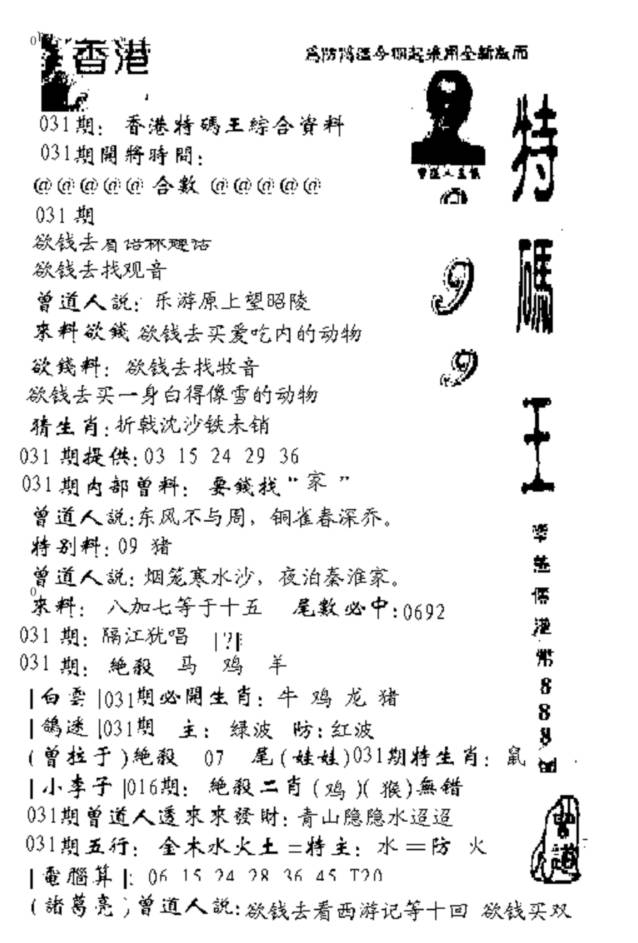 香港
特碼王
031期: 香港特碼王綜合資料
031期開將時間:
@@@@@ 合數 @@@@@
031期
欲钱去
欲钱去找观音
曾道人説: 乐游原上望昭陵
來料欲錢 欲钱去买爱吃内的动物
欲錢料: 欲钱去找牧音
欲钱去买一身白得像雪的动物
猜生肖: 折戟沈沙铁未销
031期提供: 03 15 24 29 36
031期内部曾料: 要錢找“家”
曾道人説: 东风不与周, 铜雀春深乔。
特别料: 09 猪
曾道人説: 烟笼寒水沙, 夜泊秦淮家。
來料: 八加七等于十五 尾數必中: 0692
031期: 隔江犹唱 |?|
031期: 絶殺 马 鸡 羊
|白雲|031期必開生肖: 牛 鸡 龙 猪
|鴿迷|031期 主: 绿波 防: 红波
(曾拉于)絶殺 07 尾(娃娃)031期特生肖: 鼠
|小李子|016期: 絶殺二肖(鸡)(猴)無错
031期曾道人透來來發財: 青山隐隐水迢迢
031期五行: 金木水火土=特主: 水=防 火
|電腦算|: 06 15 24 28 36 45 T20
(諸葛亮)曾道人説: 欲钱去看西游记等十回 欲钱买双
888